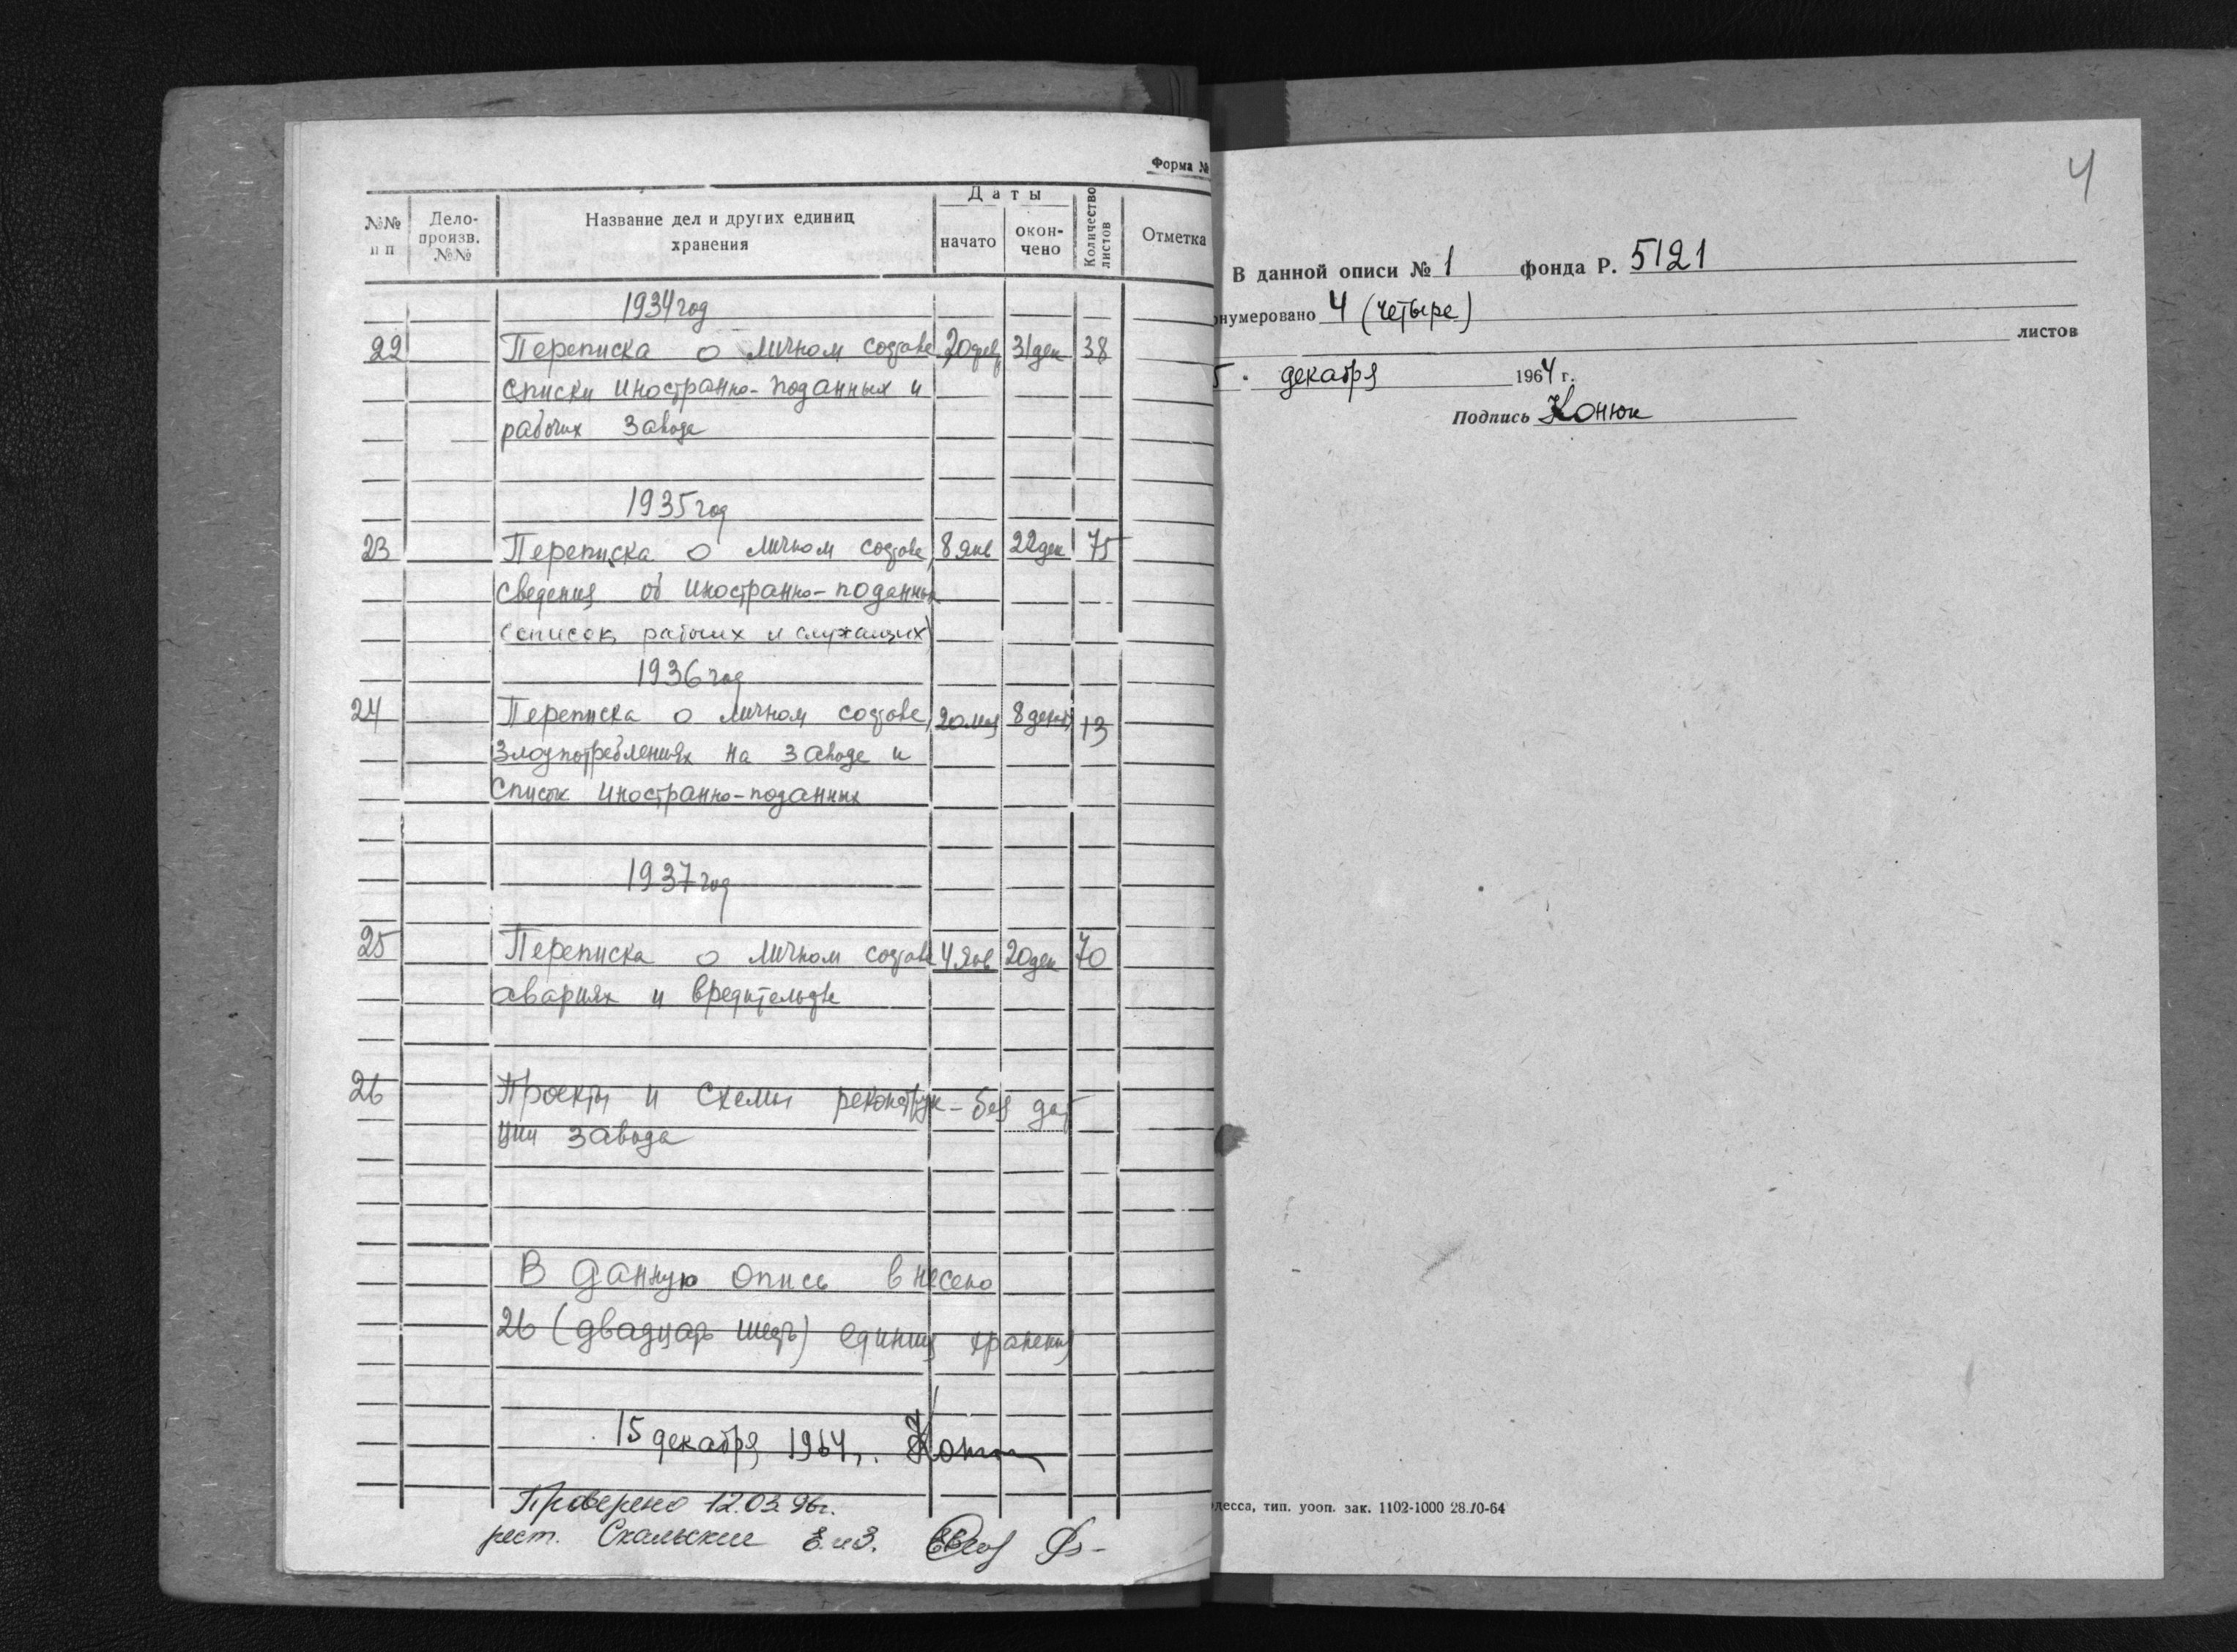 Форма №
№№ п п
Дело-произв. №№
Название дел и других единиц хранения
Даты
начато
окон-чено
Количество листов
Отметка
1934 год
22 Переписка о личном составе, 20 фев 31 дек 38
списки иностранно-поданных и
рабочих завода
1935 год
23 Переписка о личном составе, 8 янв 22 дек 75
сведения об иностранно-поданных
(список рабочих и служащих)
1936 год
24 Переписка о личном составе, 20 мая 8 декаб 13
злоупотреблениях на заводе и
список иностранно-поданных
1937 год
25 Переписка о личном составе 4 янв 20 дек 70
авариях и вредительстве
26 Проекты и схемы реконструк- без дат
ции завода
В данную опись внесено
26 (двадцать шесть) единиц хранения
15 декабря 1964 г. Конюк
Проверено 12.03.96г.
рест. Скальские Е. и З.
4
В данной описи № 1 фонда Р. 5121
онумеровано 4 (четыре)
листов
5 декабря 1964 г.
Подпись Конюк
десса, тип. уооп. зак. 1102-1000 28.10-64